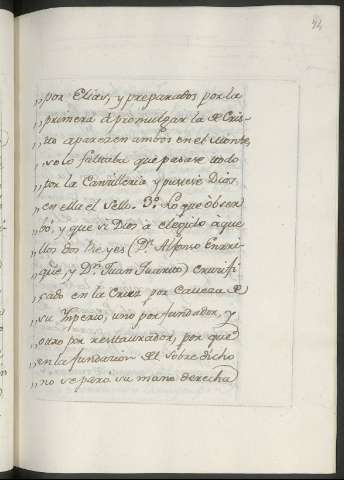 74
,, por Elias, y preparados por la
,, primera á promulgar la de Cris-
,, to aparecen ambos en el Monte,
,, solo faltaba que pasase todo
,, por la Canzilleria y pusiese Dios
,, en ella el Sello. 3º. Lo que obser
,, bó, y que si Dios á elegido à que
,, llos dos Reyes (Dn. Alfonso Enrri-
,, que, y Dn. Juan Quarto) crucifi
,, cado en la Cruz por Caveza de
,, su Ynperio, uno por fundador, y
,, otro por resttaurador, por que
,, en la fundazion del sobre dicho
,, no separó su mano derecha